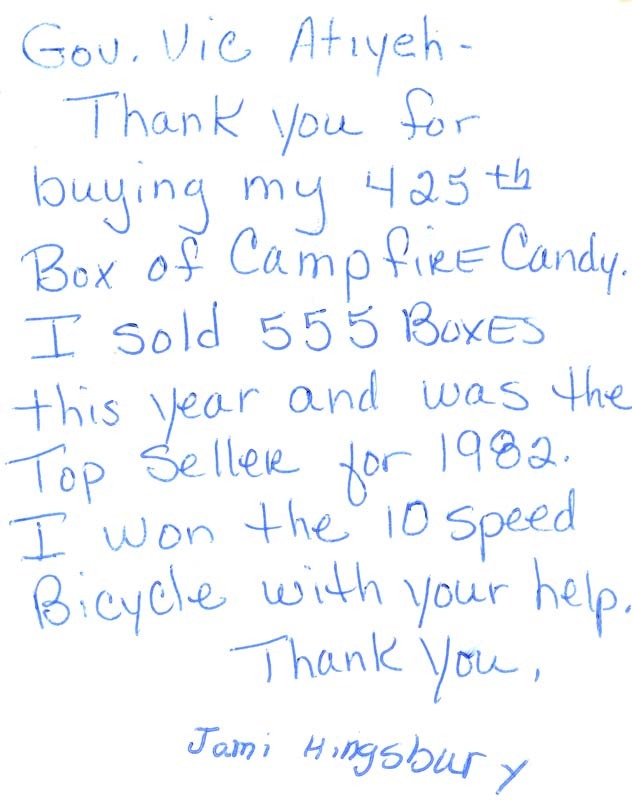 Gov. Vic Atiyeh -
Thank you for
buying my 425th
Box of CampfiRE Candy.
I sold 555 BoxES
this year and was the
Top SelleR for 1982.
I won the 10 speed
Bicycle with your help.
Thank You,
Jami Hingsbury